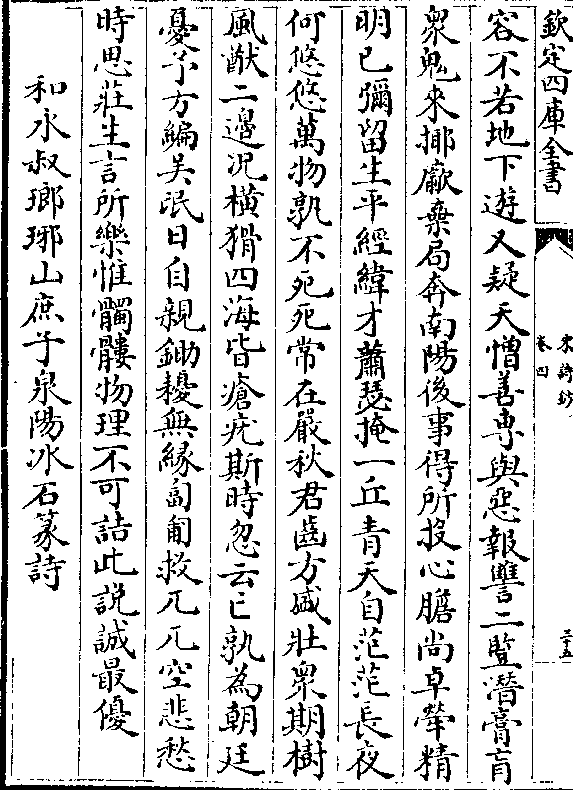 欽定四庫全書
宋詩鈔
卷四
三十五
容不若地下遊又疑天憎善專與惡報讐二豎潛膏肓
衆鬼來揶歈棄局奔南陽後事得所投心膽尚卓犖精
明已彌留生平經緯才蕭瑟掩一丘青天自茫茫長夜
何悠悠萬物孰不死死常在嚴秋君齒方盛壯衆期樹
風猷二邊况橫猾四海皆瘡疣斯時忽云亡孰為朝廷
憂予方編吳氓日自親鋤耰無緣匍匐救兀兀空悲愁
時思莊生言所樂惟髑髏物理不可詰此説誠最優
和永叔瑯琊山庶子泉陽冰石篆詩